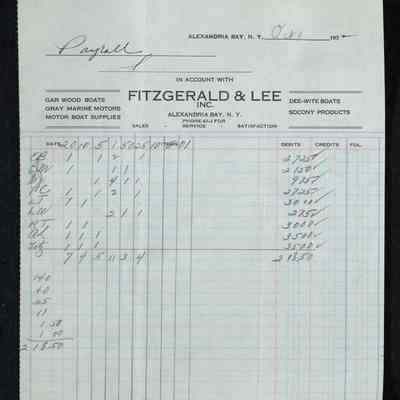 ALEXANDRIA BAY, N. Y. Oct 1 193
Payroll
IN ACCOUNT WITH
FITZGERALD & LEE
INC.
ALEXANDRIA BAY, N. Y.
PHONE 411 F2
SALES - SERVICE - SATISFACTION
GAR WOOD BOATS
GRAY MARINE MOTORS
MOTOR BOAT SUPPLIES
DEE-WITE BOATS
SOCONY PRODUCTS
DATE 20 10 5 1 50 25 10 01 DEBITS CREDITS FOL.
CB 1 1 2 1 2725 ✓
1 1 1 2150 ✓
1 4 1 1 975 ✓
1 1 2 1 2725 ✓
LT 1 1 ✓
LW 2 1 1 275 ✓
HT 1 1 3000 ✓
1 1 1 3500 ✓
1 1 1 3500 ✓
7 4 5 11 3 4 218.50
140
40
25
11
1.50
1.00
218.50